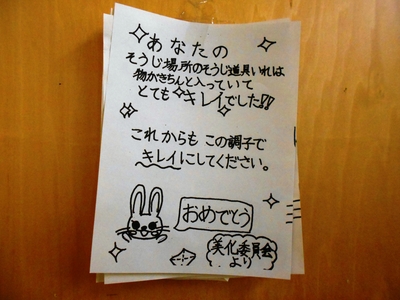 あなたの
そうじ場所のそうじ道具いれは
物がきちんと入っていて
とてもキレイでした!!
これからもこの調子で
キレイにしてください。
おめでとう
美化委員会
より